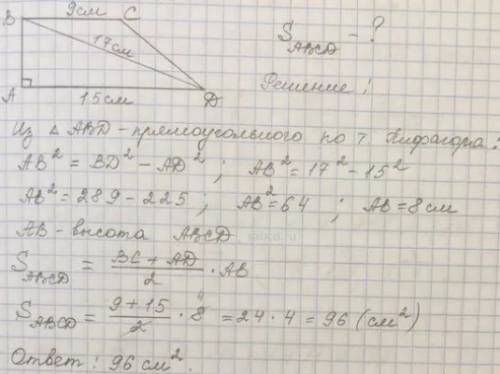 B 9см C
17см
A 15см D
S_ABCD - ?
Решение:
Из △ ABD - прямоугольного по т Пифагора:
AB² = BD² - AD² ; AB² = 17² - 15²
AB² = 289 - 225 ; AB² = 64 ; AB = 8 см
AB - высота ABCD
S_ABCD = (BC + AD)/2 · AB
S_ABCD = (9 + 15)/2 · 8 4 = 24 · 4 = 96 (см²)
Ответ: 96 см².